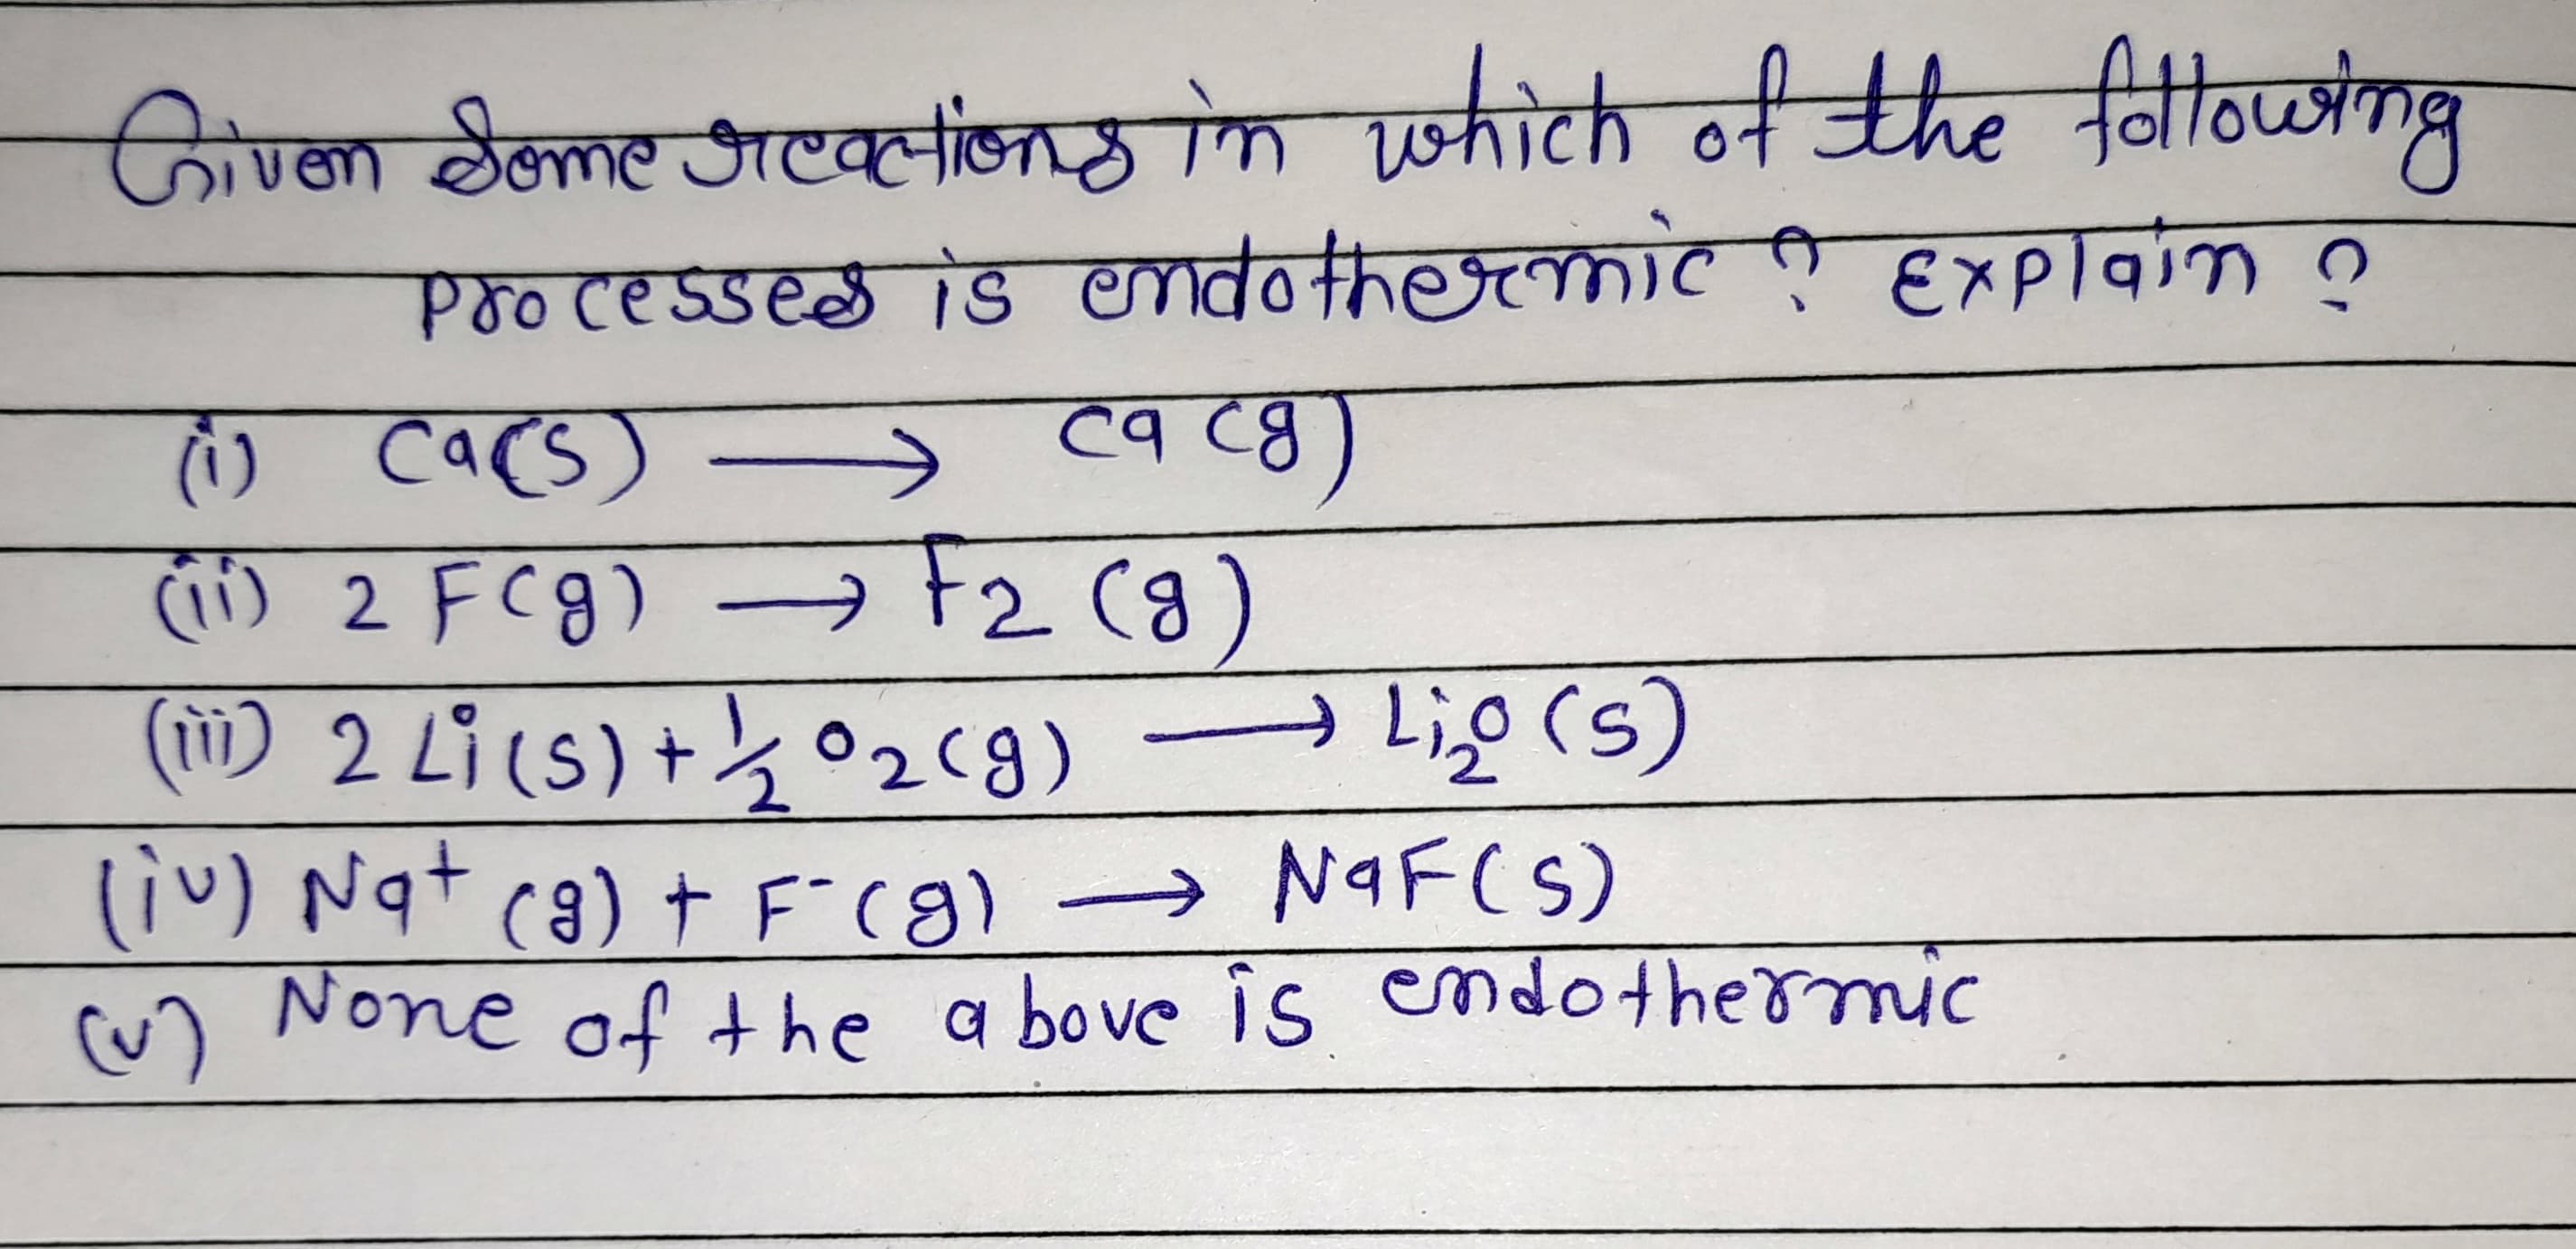 Given Some reactions in which of the following
processes is endothermic ? Explain ?
(i) Ca(s) → Ca (g)
(ii) 2 F(g) → F2 (g)
(iii) 2 Li(s) + 1/2 O2(g) → Li2O (s)
(iv) Na+ (g) + F-(g) → NaF(s)
(v) None of the above is endothermic